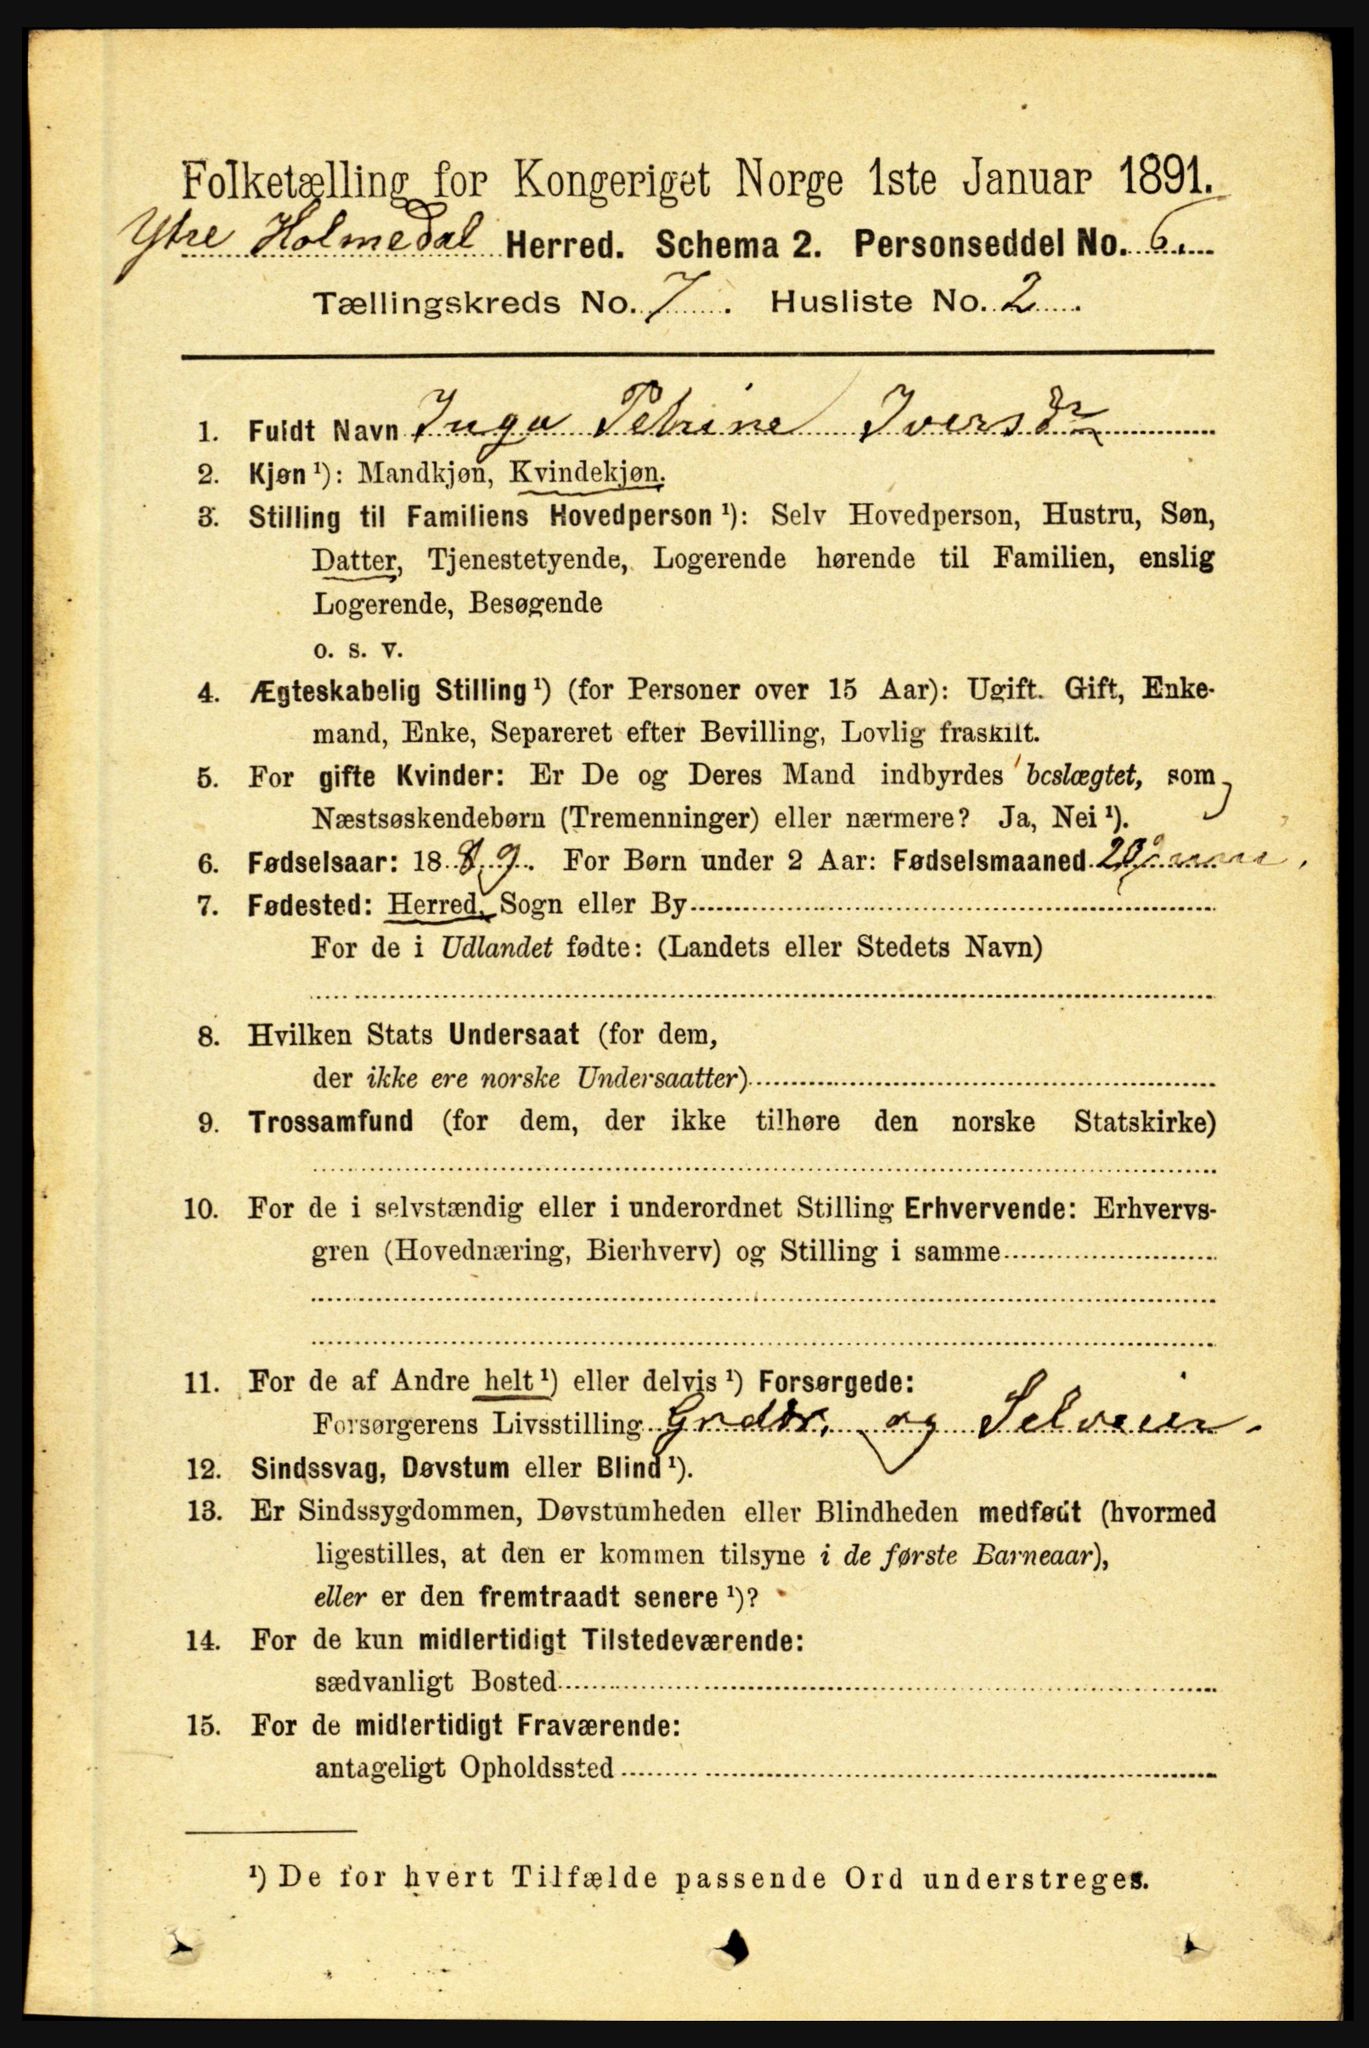 Folketælling for Kongeriget Norge 1ste Januar 1891.
Ytre Holmedal Herred. Schema 2. Personseddel No. 6.
Tællingskreds No. 7. Husliste No. 2.
1. Fuldt Navn Inga Petrine Iversdr
2. Kjøn ¹): Mandkjøn, Kvindekjøn.
3. Stilling til Familiens Hovedperson ¹): Selv Hovedperson, Hustru, Søn,
Datter, Tjenestetyende, Logerende hørende til Familien, enslig
Logerende, Besøgende
o. s. v.
4. Ægteskabelig Stilling ¹) (for Personer over 15 Aar): Ugift. Gift, Enke-
mand, Enke, Separeret efter Bevilling, Lovlig fraskilt.
5. For gifte Kvinder: Er De og Deres Mand indbyrdes beslægtet, som
Næstsøskendebørn (Tremenninger) eller nærmere? Ja, Nei ¹).
6. Fødselsaar: 1889. For Børn under 2 Aar: Fødselsmaaned 20
7. Fødested: Herred, Sogn eller By
For de i Udlandet fødte: (Landets eller Stedets Navn)
8. Hvilken Stats Undersaat (for dem,
der ikke ere norske Undersaatter)
9. Trossamfund (for dem, der ikke tilhøre den norske Statskirke)
10. For de i selvstændig eller i underordnet Stilling Erhvervende: Erhvervs-
gren (Hovednæring, Bierhverv) og Stilling i samme
11. For de af Andre helt ¹) eller delvis ¹) Forsørgede:
Forsørgerens Livsstilling Grdbr. og Selveier.
12. Sindssvag, Døvstum eller Blind ¹).
13. Er Sindssygdommen, Døvstumheden eller Blindheden medfødt (hvormed
ligestilles, at den er kommen tilsyne i de første Barneaar),
eller er den fremtraadt senere ¹)?
14. For de kun midlertidigt Tilstedeværende:
sædvanligt Bosted
15. For de midlertidigt Fraværende:
antageligt Opholdssted
¹) De for hvert Tilfælde passende Ord understreges.